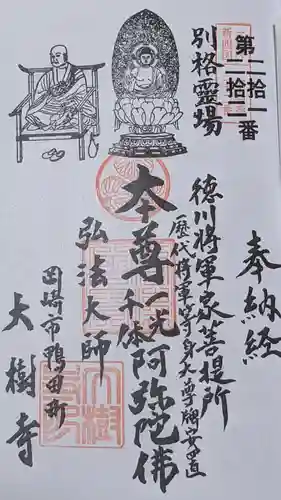 奉納経
第二拾一
二拾二番
別格霊場
徳川将軍家菩提所
歴代将軍等身大尊牌安置
本尊一光千体阿弥陀佛
弘法大師
岡崎市鴨田町
大樹寺